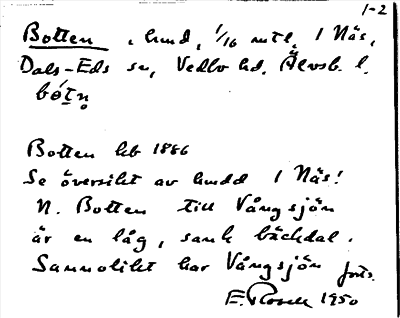 1-2
Botten, hmd, 1/16 mtl, 1 Näs,
Dals-Eds sn, Vedbo hd. Älvsb. l.
bó̀tn̥
Botten hb 1886
Se översikt av hmdd 1 Näs!
N. Botten till Vångsjön
är en låg, sank bäckdal.
Sannolikt har Vångsjön forts.
E. Rosell 1950